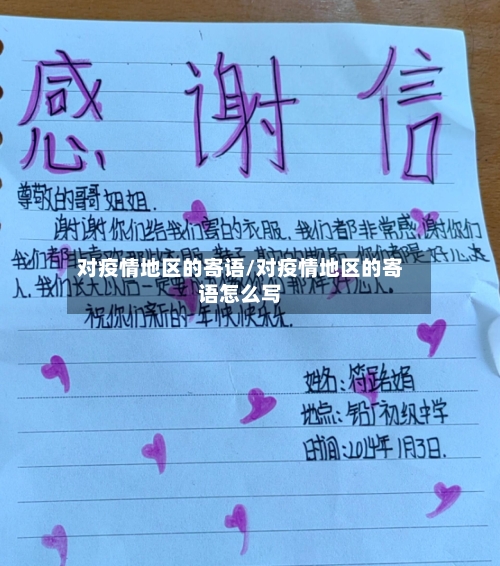 感 谢 信
尊敬的哥姐姐.
谢谢你们给我们寄的衣服.我们都非常感谢你们
我们都非 你们都是好心
对疫情地区的寄语/对疫情地区的寄
人.我们长大以后一定要 那样好心人.
语怎么写
祝你们新的一年快快乐乐.
姓名:符路娟
地点:铅厂初级中学
时间:2014年1月3日.